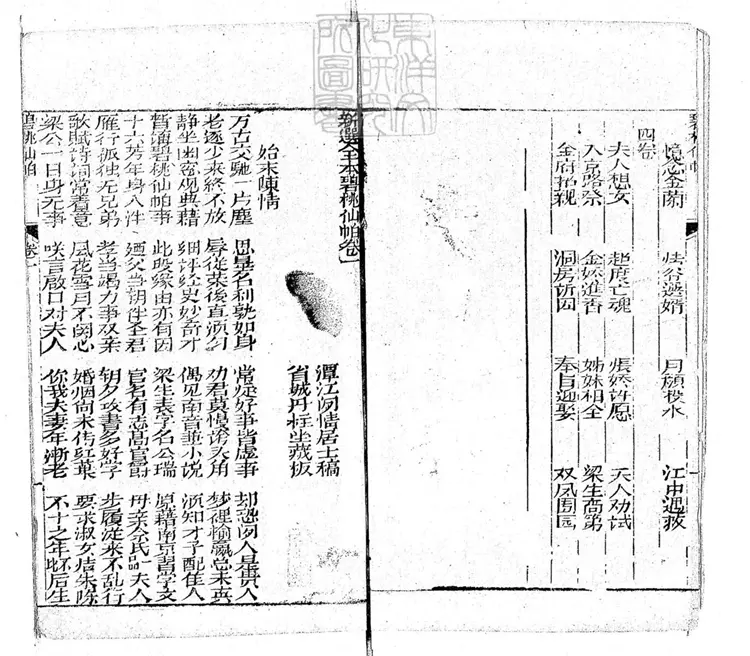 東洋文化研究所圖書
碧桃仙帕
憶念金蘭 選婿 月顏投水 江中遇救
四卷
夫人想女 趙虎亡魂 張嬌許愿 夫人劝試
入京路祭 金嬌進香 姊妹相全 梁生高第
金府招親 洞房訴因 奉旨迎娶 双凤團圓
新選全本碧桃仙帕卷一
潭江闲情居士稿
省城丹桂堂藏板
始末陳情
万古交馳一片塵 思量名利孰如身 常疑好事皆虚事 却恐闲人是貴人
老逐少來終不放 辱從荣後直須匀 劝君莫惜誇头角 梦裡输贏总未真
静坐幽窓观典藉 細評经史妙奇才 偶见南音並小说 须知才子配佳人
暫演碧桃仙帕事 此段缘由亦有因 梁生表字名公瑞 原籍南京習学文
十六芳年身入泮 廼父当朝作圣君 官名有志高官爵 母亲余氏一品夫人
雁行孤独无兄弟 孝当竭力事双亲 朝夕攻書多好学 步履從来不乱行
歌賦诗词常着意 風花雪月不闲心 婚姻尚未传红葉 要求淑女结朱陈
梁公一日身无事 咲言啟口对夫人 你我夫妻年漸老 不十之年盼后生
碧桃仙帕 卷一